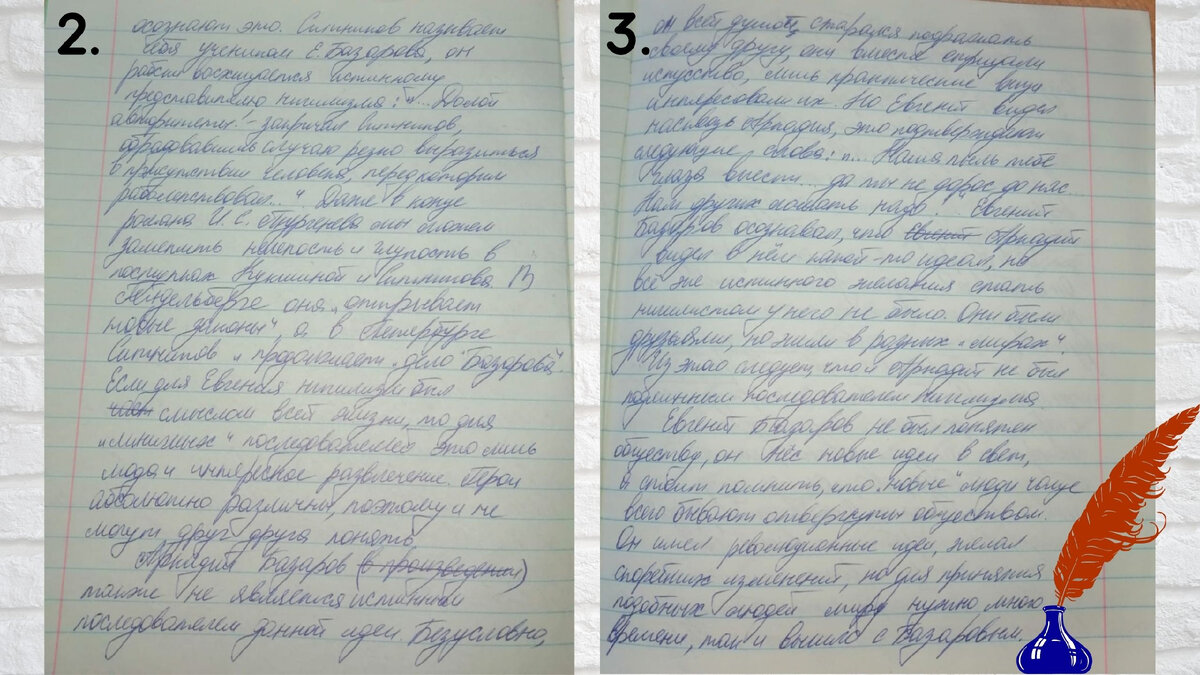 2.
осознают это. Ситников называет
себя учеником Е. Базарова, он
рабски восхищается истинному
представителю нигилизма: "... Долой
авторитеты! - закричал Ситников,
обрадовавшись случаю резко выразиться
в присутствии человека, перед которым
раболепствовал..." Даже в конце
романа И. С. Тургенева мы можем
заметить нелепость и глупость в
поступках Кукшиной и Ситникова. В
Гейдельберге она „открывает
новые законы", а в Петербурге
Ситников „продолжает „дело Базарова".
Если для Евгения нигилизм был
смыслом всей жизни, то для
„мнимых" последователей это лишь
мода и интересное развлечение. Герои
абсолютно различны, поэтому и не
могут друг друга понять.
Аркадий Базаров (в произведении)
также не является истинным
последователем данной идеи. Безусловно,
3.
он всей душой старался подражать
своему другу, они вместе отрицали
искусство, лишь практические вещи
интересовали их. Но Евгений видел
насквозь Аркадия, это подтверждают
следующие слова: "... Наша пыль тебе
глаза выест... да ты не дорос до нас
Нам других ломать надо." Евгений
Базаров осознавал, что Евгений Аркадий
видел в нём какой-то идеал, но
всё же истинного желания стать
нигилистом у него не было. Они были
друзьями, но жили в разных „мирах".
Из этого следует, что и Аркадий не был
подлинным последователем нигилизма.
Евгений Базаров не был понятен
обществу, он нёс новые идеи в свет,
а стоит помнить, что „новые" люди чаще
всего бывают отвергнуты обществом.
Он имел революционные идеи, желал
скорейших изменений, но для принятия
подобных людей миру нужно много
времени, так и вышло с Базаровым.